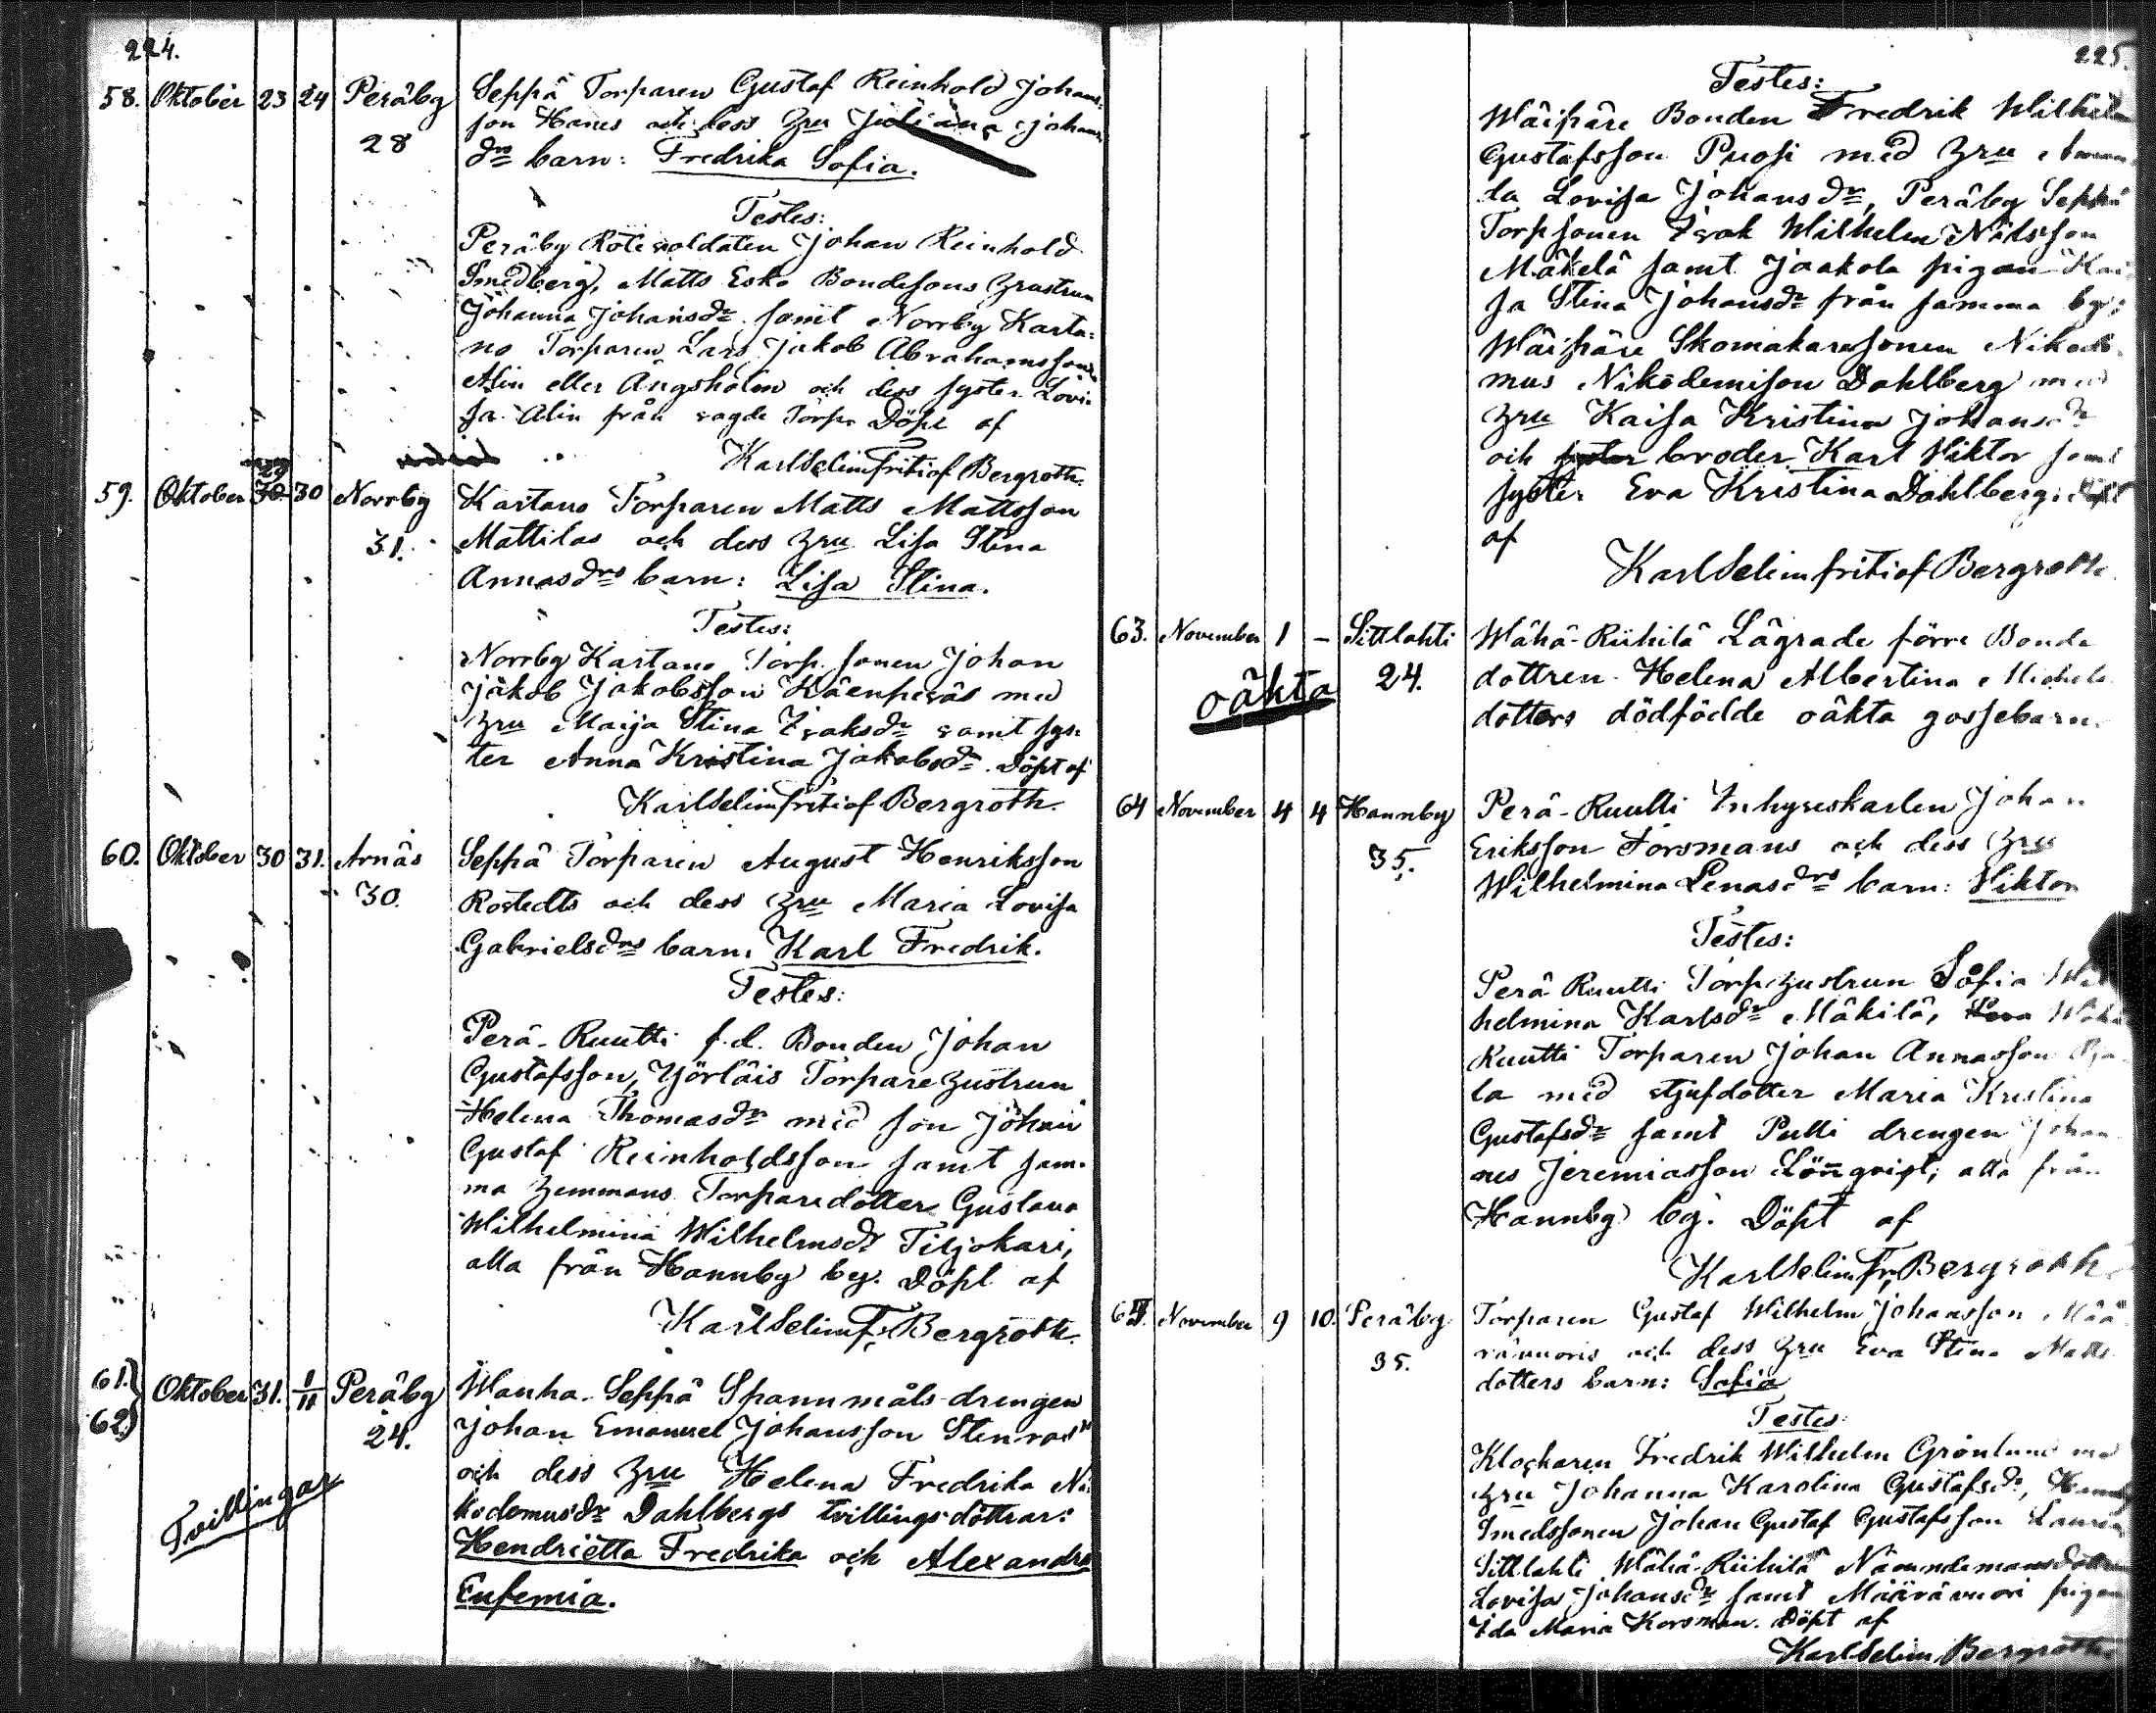 224.
58. Oktober 23 24 Peräby Seppä Torparen Gustaf Reinhold Johans-
28 son Hanes och dess Hru Juliana Johans
drs barn: Fredrika Sofia.
Testes:
Peräby Rotesoldaten Johan Reinhold
Smedberg, Matts Esko Bondesons Hustrun
Johanna Johansdr samt Norrby Karta-
no Torparen Lars Jakob Abrahamsson
Alin eller Ängsholm och dess syster Lovi-
sa Alin från sagde Torp. Döpt af
Karl Selim Fritiof Bergroth.
59. Oktober 29 30 30 Norrby Kartano Torparen Matts Mattsson
31. Mattilas och dess Hru Lisa Stina
Annasdrs barn: Lisa Stina.
Testes:
Norrby Kartano Torp. sonen Johan
Jakob Jakobsson Käenperäs med
Hru Maija Stina Isaksdr samt sys-
ter Anna Kristina Jakobsdr. Döpt af
Karl Selim Fritiof Bergroth.
60. Oktober 30 31. Arnäs Seppä Torparen August Henriksson
30. Rostedts och dess Hru Maria Lovisa
Gabrielsdrs barn: Karl Fredrik.
Testes:
Perä-Ruutti f.d. Bonden Johan
Gustafsson, Yörläis Torpare Hustrun
Helena Thomasdr med son Johan
Gustaf Reinholdsson samt sam-
ma Hemmans Torparedotter Gustava
Wilhelmina Wilhelmsdr Tiljokari,
alla från Hannby by. Döpt af
Karl Selim Fr. Bergroth.
61.) Oktober 31. 1/11 Peräby Wanha-Seppä Spannmåls-drengen
62.) 24. Johan Emanuel Johansson Stenroos
Tvillingar och dess Hru Helena Fredrika Ni-
kodemusdr Dahlbergs tvillings-döttrar:
Hendrietta Fredrika och Alexandra
Eufemia.
225.
Testes:
Wäipäre Bonden Fredrik Wilhelm
Gustafsson Puosi med Hru Aman
da Lovisa Johansdr, Peräby Seppä
Torpsonen Isak Wilhelm Nilsson
Mäkelä samt Jaakola pigan Kai
sa Stina Johansdr från samma by;
Wäipäre Skomakaresonen Nikode-
mus Nikodemison Dahlberg med
Hru Kaisa Kristina Johansdr
och syster broder Karl Viktor samt
syster Eva Kristina Dahlberg: döpt
af
Karl Selim Fritiof Bergroth.
63. November 1 - Sittlahti Wähä-Riihilä Lägrade förre Bonde
oäkta 24. dottren Helena Albertina Michels
dotters dödfödde oäkta gossebarn.
64 November 4 4 Hannby Perä-Ruutti Inhyseskarlen Johan
35. Eriksson Forsmans och dess Hru
Wilhelmina Lenasdrs barn: Viktor
Testes:
Perä Ruutti Torp.hustrun Sofia Wil
helmina Karlsdr Mäkilä, Wähä
Ruutti Torparen Johan Annasson
la med stjufdotter Maria Kristina
Gustafsdr samt Putti drengen Johan
nes Jeremiasson Lönnqvist; alla från
Hannby by. Döpt af
Karl Selim Fr. Bergroth
65. November 9 10. Peräby Torparen Gustaf Wilhelm Johansson Mää
35. rävuoris och dess Hru Eva Stina Matts
dotters barn: Sofia
Testes:
Klockaren Fredrik Wilhelm Grönlund med
Hru Johanna Karolina Gustafsdr, Hannby
Smedssonen Johan Gustaf Gustafsson
Sittlahti Wähä-Riihilä Nämndemansdottren
Lovisa Johansdr samt Määrävuori pigan
Ida Maria Korsman. Döpt af
Karl Selim Bergroth